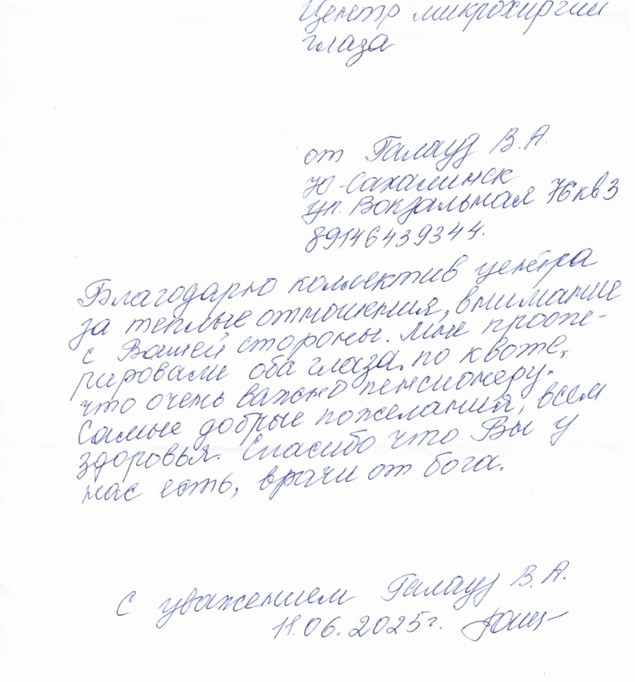 Центр микрохиргии
глаза
от Галауз В.А.
Ю-Сахалинск
ул. Вокзальная 76 кв 3
89146439344.
Благодарю коллектив центра
за теплые отношения, внимание
с Вашей стороны. Мне проопе-
рировали оба глаза, по квоте,
что очень важно пенсионеру.
Самые добрые пожелания, всем
здоровья. Спасибо что Вы у
нас есть, врачи от бога.
С уважением Галауз В.А.
11.06.2025г.